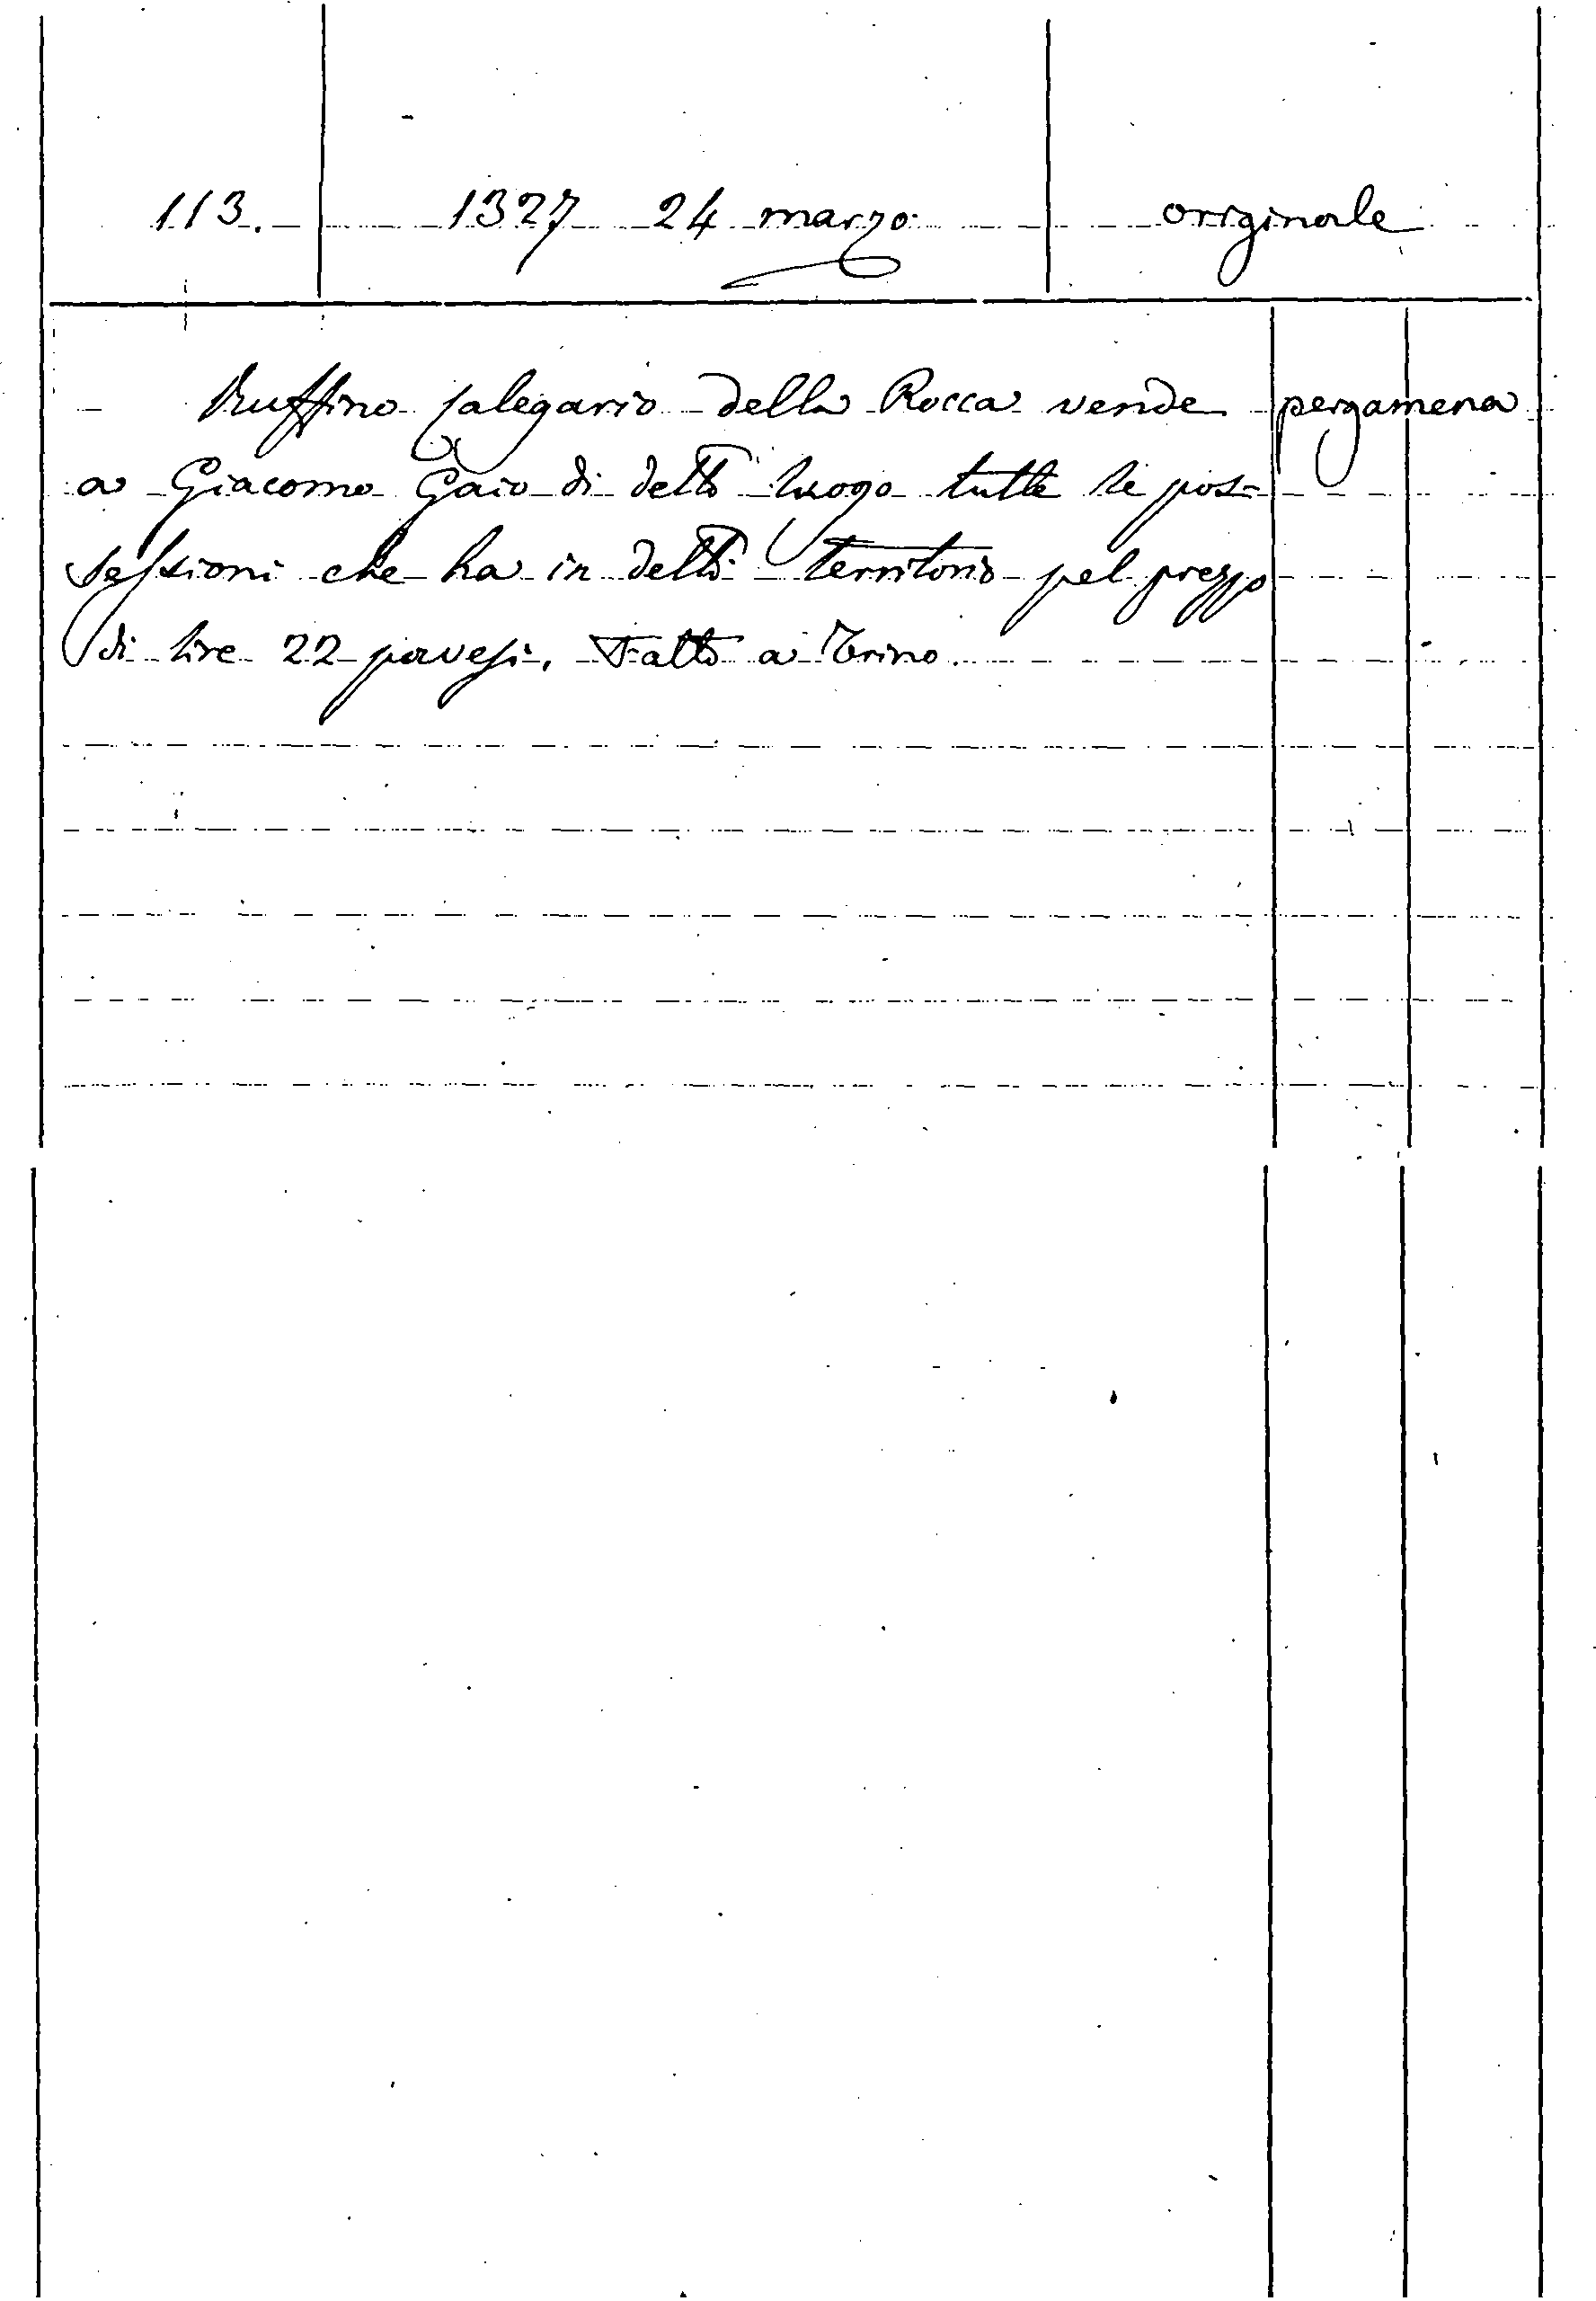 113. 1327 24 marzo originale
Ruffino salegario della Rocca vende pergamena
a Giacomo Gaio di detto luogo tutte le pos=
sessioni che ha in detto territorio pel prezzo
di lire 22 pavesi. Fatto a Trino.